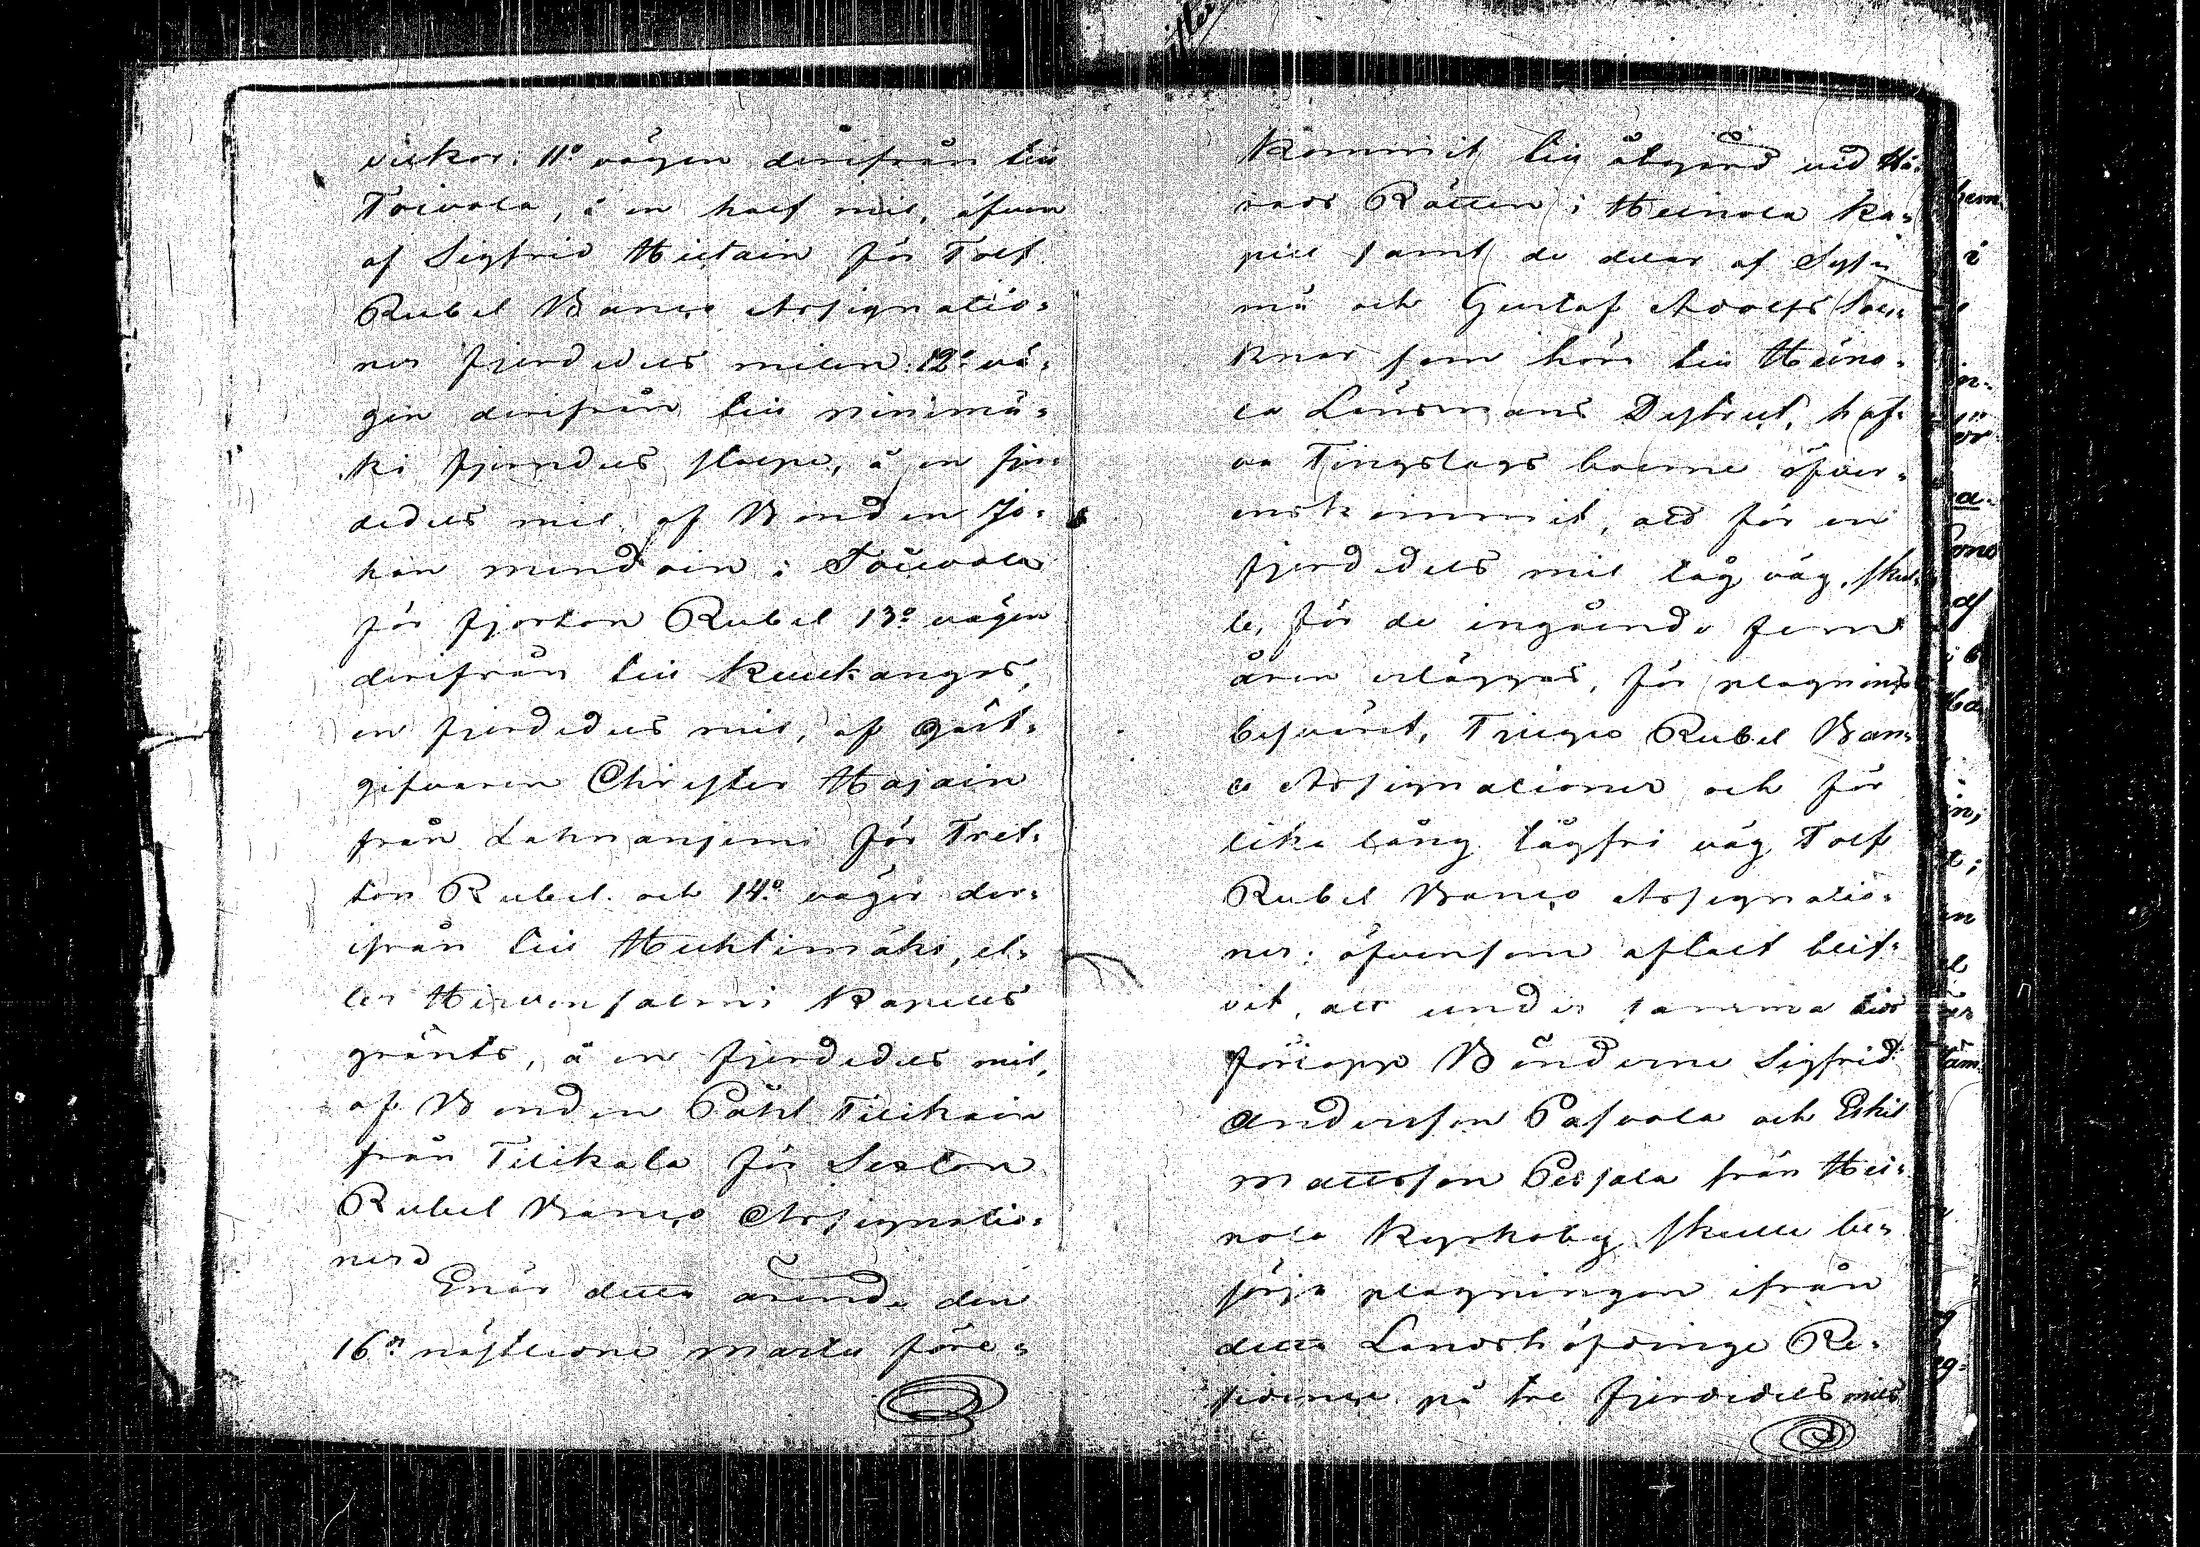 vilkor: 11º vägen derifrån till
Toivola, å en half mil, äfven
af Sigfrid Hietain för Tolf
Rubel Banco Assignatio=
ner fjerdedels milen: 12º vä=
gen derifrån till Ninimä=
ki fjerndels stolpe, å en fjer=
dedels mil af Bonden Jo=
han Mendoin i Toivola
för fjorton Rubel 13º vägen
derifrån till Kuukangas,
en fjerdedels mil, af Gäst=
gifvaren Christer Hajain
från Lahnaniemi för Tret=
ton Rubel och 14º vägen der=
ifrån till Huhtimäki, el=
ler Hirvensalmi Kapells
gränts, å en fjerdedels mil,
af Bonden Påhl Tiitikain
från Tiilikala för Sexton
Rubel Banco Assignatio=
ner.
Enär detta ärende den
16de nästledne Martii före=
kommit till åtgärd vid Hä=
rads Rätten i Heinola Ka=
pell samt de delar af Sysi=
mä och Gustaf Adolfs Soc=
knar som höra till Heino=
la Länsmans District, haf=
va Tingslags boerne öfver=
enskommit, att för en
fjerdedels mil tåg väg, skul=
le, för de ingående fem
åren erläggas, för plognings
besväret, Tjugo Rubel Ban=
co Assignationer och för
lika lång tågfri väg Tolf
Rubel Banco Assignatio=
ner; äfvensom aftalt blif=
vit, att under samma tids
förlopp Bönderne Sigfrid
Andersson Pasvola och Eskil
Mattsson Pessala från Hei=
nola Kyrkoby skulle be=
sörja plogningen ifrån
detta Landshöfdinge Re=
sidence på tre fjerdedels mils